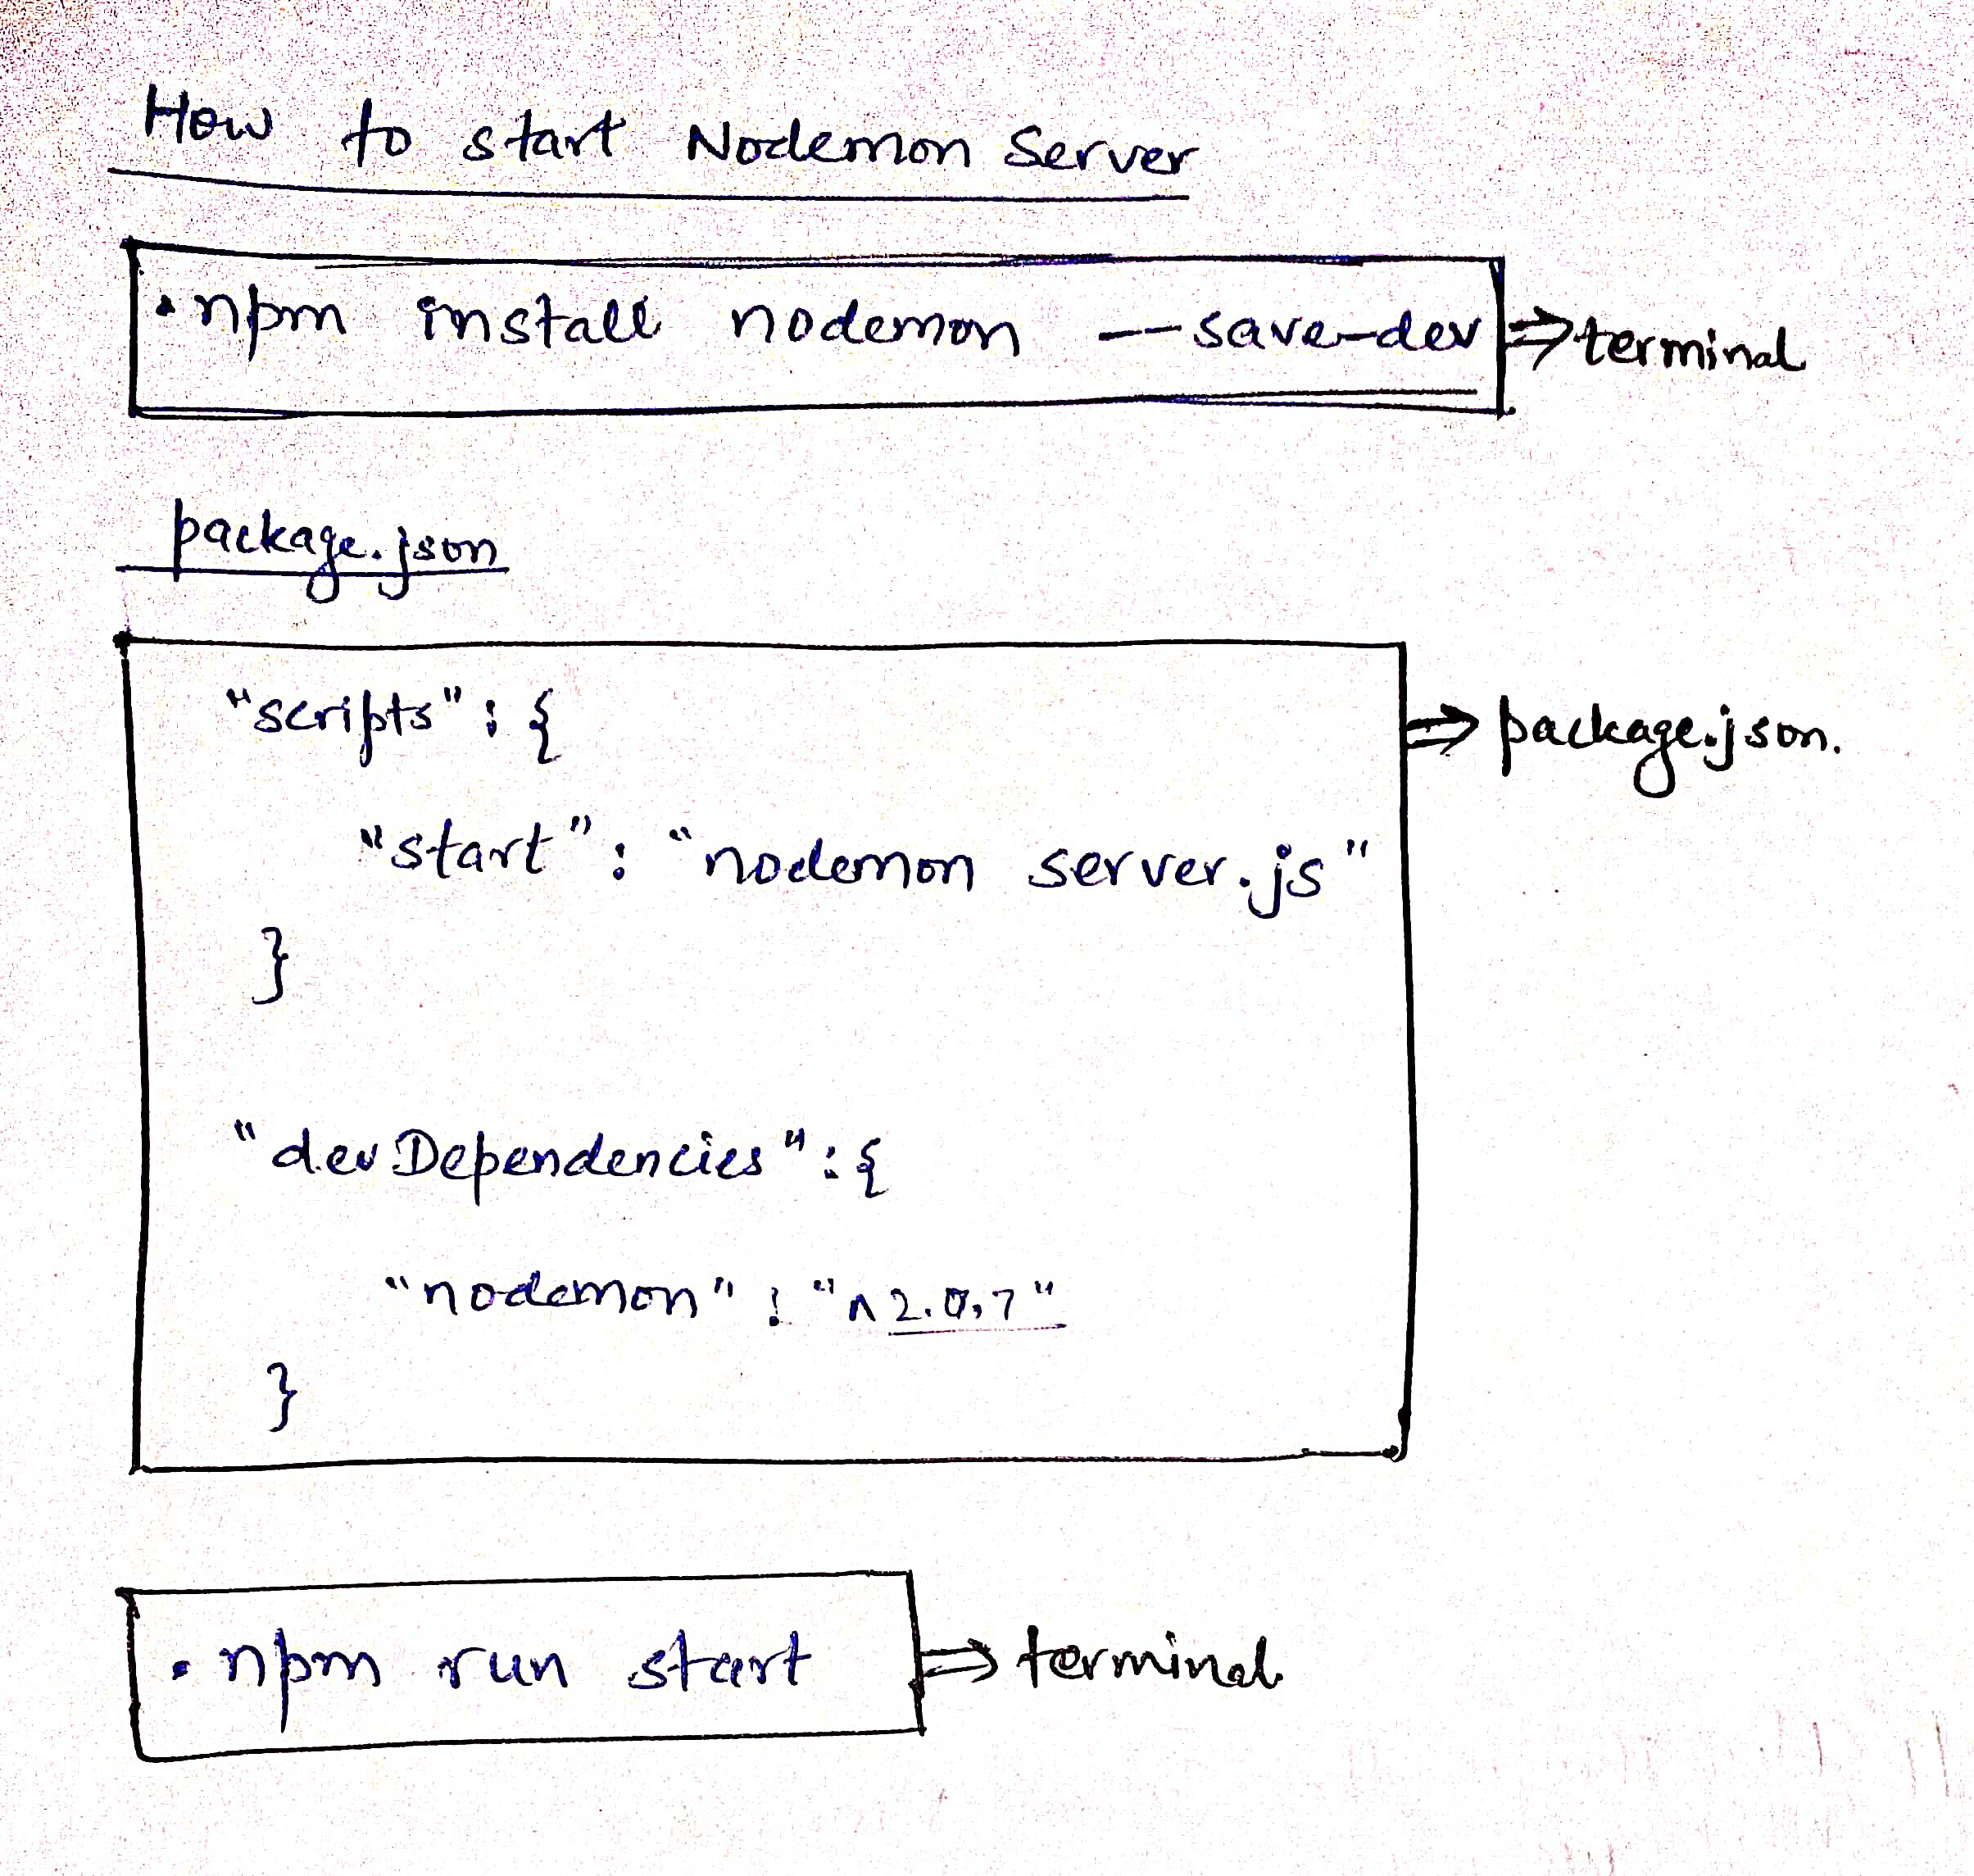 How to start Nodemon Server
• npm install nodemon --save-dev ⇒ terminal
package.json
"scripts" : {
⇒ package.json.
"start" : "nodemon server.js"
}
"devDependencies" : {
"nodemon" : "^2.0.7"
}
• npm run start ⇒ terminal